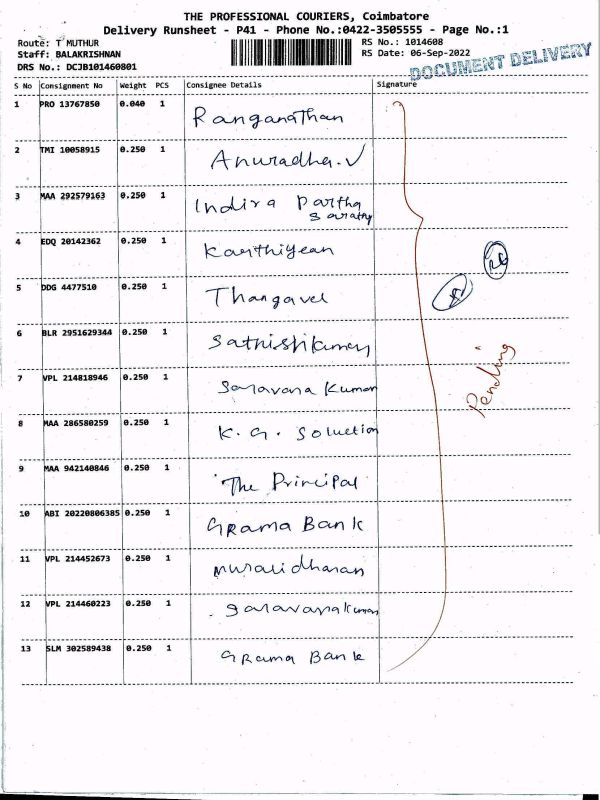 THE PROFESSIONAL COURIERS, Coimbatore
Delivery Runsheet - P41 - Phone No.:0422-3505555 - Page No.:1
Route: T MUTHUR
RS No.: 1014608
Staff: BALAKRISHNAN
RS Date: 06-Sep-2022
DRS No.: DCJB101460801
DOCUMENT DELIVERY
S No Consignment No Weight PCS Consignee Details Signature
1 PRO 13767850 0.040 1 Ranganathan
2 TMI 10058915 0.250 1 Anuradha.V
3 MAA 292579163 0.250 1 Indira Partha
Sarathy
4 EDQ 20142362 0.250 1 Karthiyean
5 DDG 4477510 0.250 1 Thangavel
6 BLR 2951629344 0.250 1 Sathishkumar
7 VPL 214818946 0.250 1 Saravana Kumar
8 MAA 286580259 0.250 1 K. G. Soluction
9 MAA 942140846 0.250 1 The Principal
10 ABI 20220806385 0.250 1 Grama Bank
11 VPL 214452673 0.250 1 Muralidharan
12 VPL 214460223 0.250 1 Saravanakumar
13 SLM 302589438 0.250 1 Grama Bank
Pending